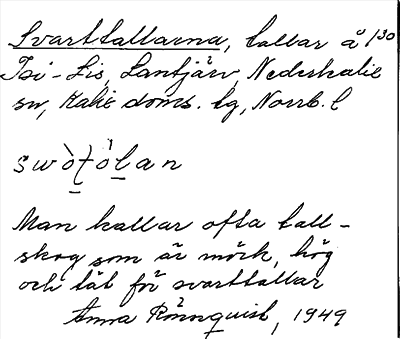 Svarttallarna, tallar å 130
Tsi-Lis, Lantjärv, Nederkalix
sn, Kalix doms. lg, Norrb. l
swòtólan
Man kallar ofta tall-
skog som är mörk, hög
och tät för svarttallar
Anna Rönnquist, 1949